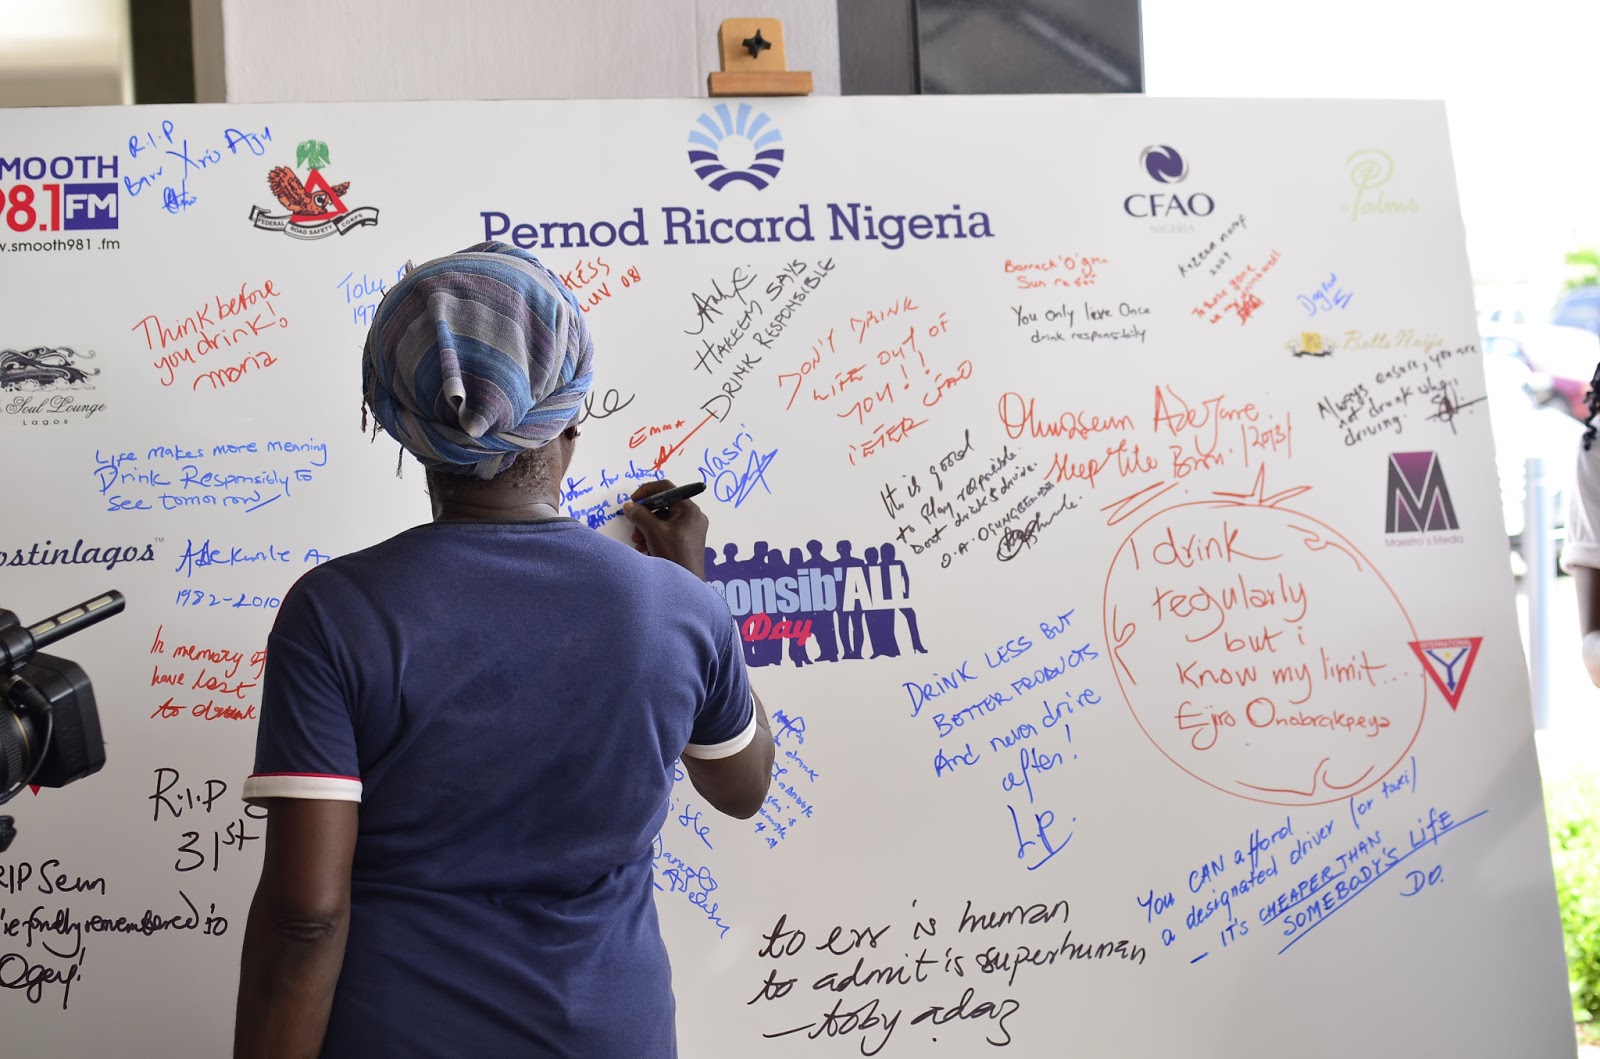 MOOTH
98.1 FM
w.smooth981.fm
R.I.P
FEDERAL ROAD SAFETY CORPS
Pernod Ricard Nigeria
CFAO
NIGERIA
Palms
Think before
you drink!
maria
Tolu
197
LUV 08
HAKEEM SAYS
DRINK RESPONSIBLE
DON'T DRINK
LIFE OUT OF
YOU!!
CFAO
You only live Once
drink responsibly
2007
Bella Naija
Always ensure, you are
not drunk when
driving.
Soul Lounge
Lagos
Life makes more meaning
Drink Responsibly to
see tomorrow
EMMA
Nasri
It is good
to play responsible.
Dont drink & drive.
Oluwaseun Adejare
/2013/
Maestro's Media
ostinlagos™
Adekunle A
1982-2010
onsib'ALL
Day
I drink
regularly
but i
know my limit....
Ejiro Onobrakpeya
INTERNATIONAL
In memory of
have lost
to drunk
DRINK LESS BUT
BETTER PRODUCTS
And never drive
after!
LP.
R.I.P
31st
RIP Seun
fondly remembered
Ogey!
You CAN afford
a designated driver (or taxi)
- IT'S CHEAPER THAN
SOMEBODY'S LIFE
DO.
to err is human
to admit is superhuman
- toby adaz